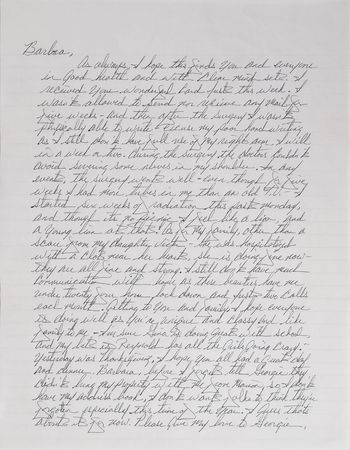 Barbara,
As always, I hope this finds You and everyone
in Good health and with Clear mind sets. I
received Your wonderful Card just this week. I
wasn't allowed to send nor recieve any mail for
five weeks. And they after the surgery I wasn't
physically able to write. Excuse my poor hand writing
as I still don't have full use of my right arm. I will
in a week or two. During the surgery the doctor couldn't
avoid severing some nerves in my shoulder. In any
event, the surgery went well - even though for five
weeks I had more tubes in me than an old T.V. I
started six weeks of radiation this past Monday,
and though its no picnic I feel like a lion, and
a Young lion at that. As for my family, other than a
scare from my daughter, - She was hospitalized
with a Clot near her heart, She is doing fine now -
they are all fine and strong. I still don't have much
Communication with as these
under twenty four hour lock down and just two Calls
each month. Getting to You and family, I hope everyone
is doing well as You're unique and Classy and like
family to me. I'm sure Gina is doing great with school
and my bet is Reynold has all the Girls Going Crazy!
Yesterday was thanksgiving, I hope you all had a Quiet day
and dinner. Barbara before I forget tell Georgie they
lost all my property with the move from Marion, so I don't
have my address book. I don't want folks to think they're
forgotten especially this time of the Year. I guess thats
about it for now. Please Give my love to Georgie,